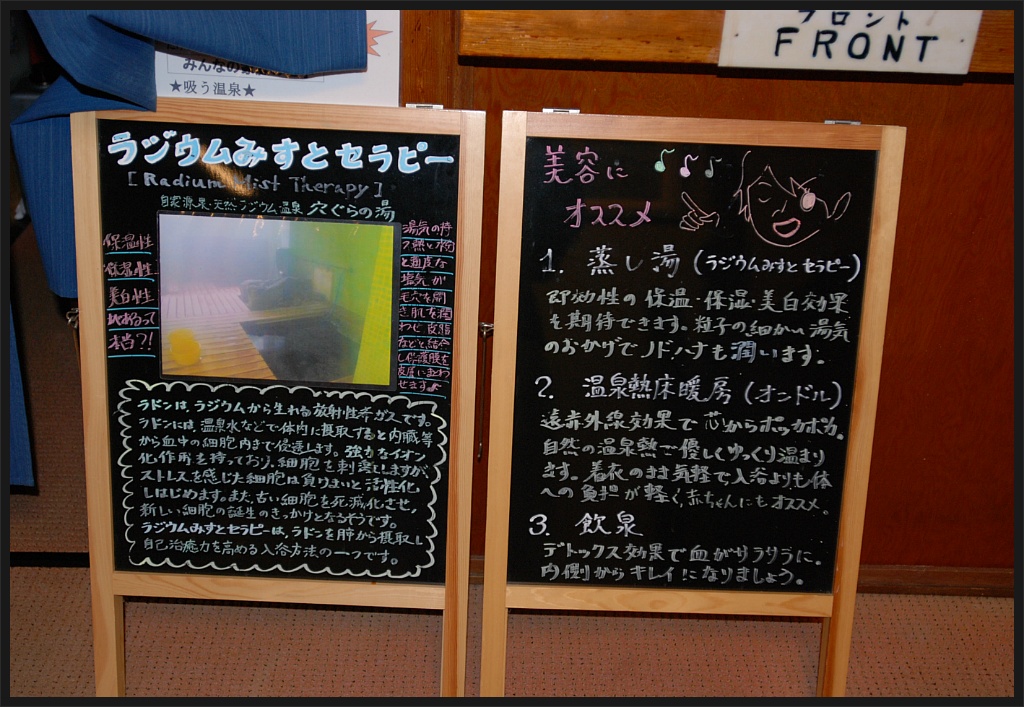 みんなの
★吸う温泉★
フロント
FRONT
ラジウムみすとセラピー
[Radium Mist Therapy]
自家源泉・天然ラジウム温泉 穴ぐらの湯
保温性
保湿性
美白性
本当?!
湯気の持
つ熱と粒
と適度な
塩気が
毛穴を開
き肌を潤
わせ皮脂
などと結合
し保護膜を
皮膚に並わ
せます
ラドンは、ラジウムから生れる放射性希ガスです。
ラドンには、温泉水などで体内に摂取すると内臓等
から血中の細胞内まで侵透します。強力なイオン
化作用を持っており、細胞を刺激しますが、
ストレスを感じた細胞は負けまいと活性化
しはじめます。また、古い細胞を死滅化させ、
新しい細胞の誕生のきっかけとなるそうです。
ラジウムみすとセラピーは、ラドンを肺から摂取し
自己治癒力を高める入浴方法の一つです。
美容に
オススメ
1. 蒸し湯(ラジウムみすとセラピー)
即効性の保温・保湿・美白効果
を期待できます。粒子の細かい湯気
のおかげでノドハナも潤います。
2. 温泉熱床暖房(オンドル)
遠赤外線効果で芯からポッカポカ。
自然の温泉熱で優しくゆっくり温まり
ます。着衣のまま気軽で入浴よりも体
への負担が軽く、赤ちゃんにもオススメ。
3. 飲泉
デトックス効果で血がサラサラに。
内側からキレイ!になりましょう。